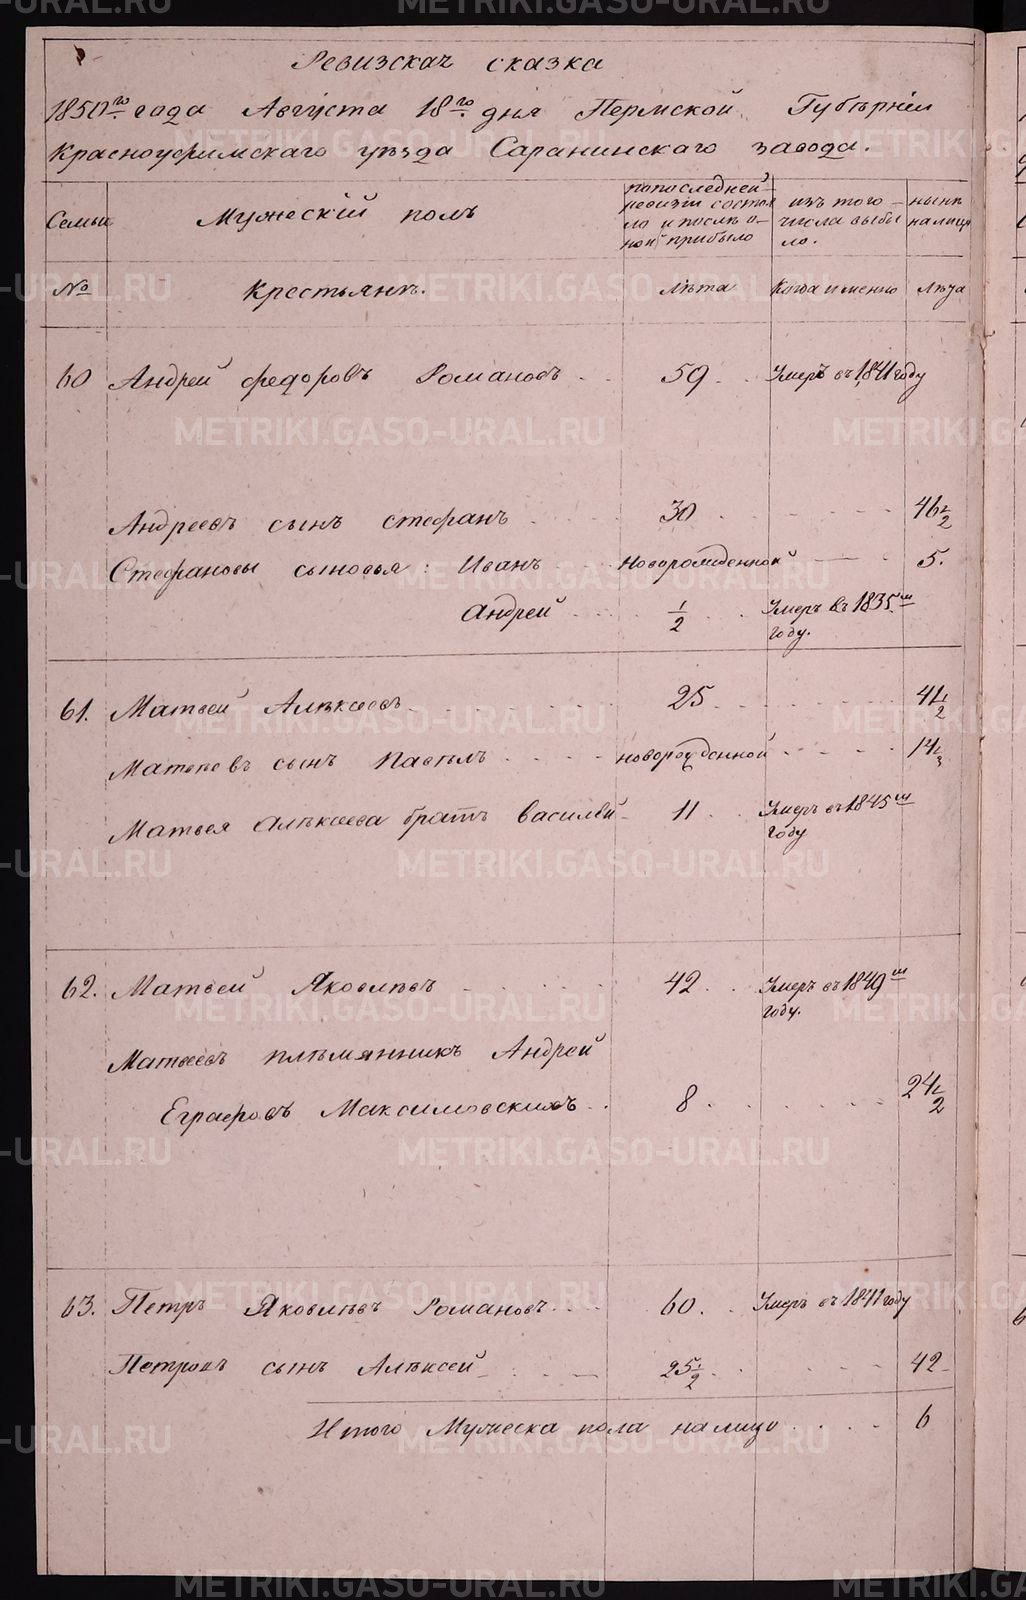 Ревизскач сказка
1850го года Августа 18го дня Пермской Губѣрнiи
Красноуфимскаго уѣзда Саранинскаго завода.
Семьи
Мужескiй полъ
попоследней
ревизiи состоя
ло и послѣ о-
ной прибыло
изъ того
числа выбы
ло.
нынѣ
налицо
№
крестьянъ.
Лѣта
Когда именно
Лѣта
60 Андрей федоровъ Романовъ 59 Умеръ въ 1841 году
Андреевъ сынъ стефанъ 30 46 1/2
Стефановы сыновья: Иванъ Новорожденной 5.
Андрей 1/2 Умеръ въ 1835м
году.
61. Матвей Алѣксеевъ 25 41 1/2
Матвеевъ сынъ Павелъ новорожденной 14 1/2
Матвея Алѣксеева братъ василей 11 Умеръ въ 1845м
году
62. Матвей Яковлѣвъ 42 Умеръ въ 1849м
году.
Матвеевъ плѣмянникъ Андрей
Еграфовъ Максимовскихъ 8 24 1/2
63. Петръ Яковлѣвъ Романовъ 60. Умеръ въ 1841 году
Петровъ сынъ Алѣксей 25 1/2 42
Итого Мужеска пола налицо 6
METRIKI.GASO-URAL.RU